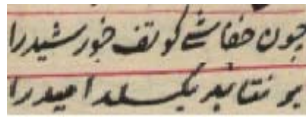 چون خفاشے کو تف خورشید را
بر نتابد بکسلد امید را